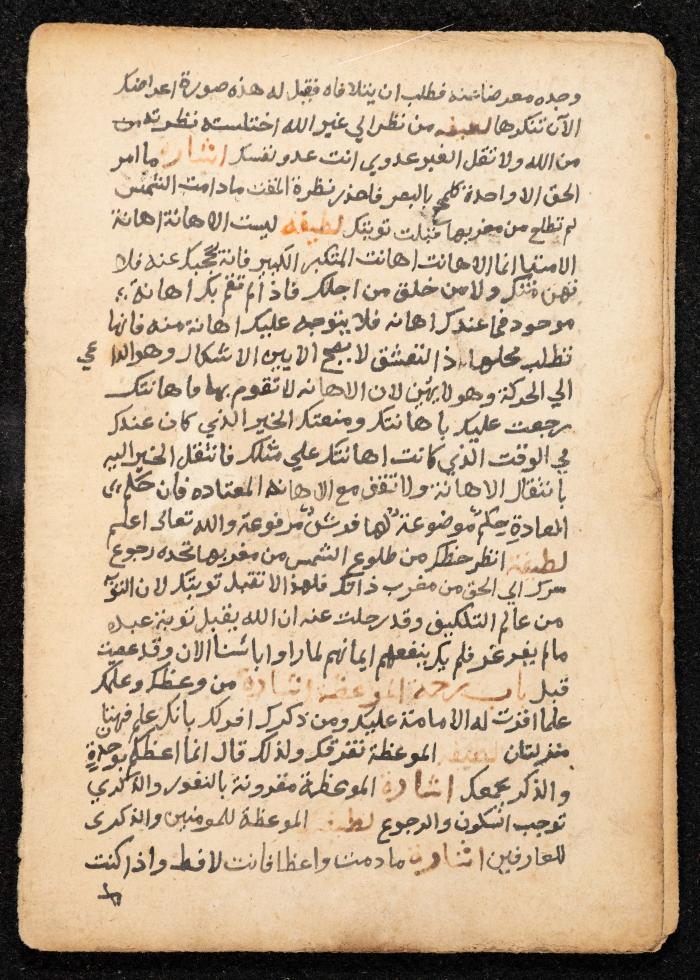 وجده معرضا عنه فطلب ان يتلافاه فقيل له هذه صورة اعراضك
الآن تنكرها لطيفه من نظر الي غير الله اختلست نظرته
من الله ولا تقل الغير عدوي انت عدو نفسك اشارة ما امر
الحق الا واحدة كلمح بالبصر فاحذر نظرة المقت ما دامت الشمس
لم تطلع من مغربها قبلت توبتك لطيفه ليست الاهانة اهانة
انما الاهانت اهانت المتكبر الكبير فانه عنه فلا
تهن مثلك ولا من خلق من اجلك فاذا لم تقم بك اهانة
موجود في عندك اهانه فلا يتوجه عليك اهانة منه فانها
تطلب محلها اذ التعشق لا يصح الا بين الاشكال وهو الداعي
الي الحركة وهو لا يهن لان الاهانه لا تقوم بها فاهانتك
رجعت عليك باهانتك ومنعتك الخير الذي كان عندك
في الوقت الذي كانت اهانتك علي مثلك فانتقل الخير اليه
بانتقال الاهانة ولا تقف مع الاهانه المعتاده فان حكم
العادة حكم موضوعة لها فرش مرفوعة والله تعالى اعلم
لطيفه انظر حظك من طلوع الشمس من مغربها تجده رجوع
سرك الي الحق من مغرب ذاتك فلهذا لا تقبل توبتك لان التوبة
من عالم التكليف وقد رحلت عنه ان الله يقبل توبة عبده
مالم يغرغر فلم يك ينفعهم ايمانهم لما راوا باسنا الان وقد عصيت
قبل باب ترجمة الموعظة اشارة من وعظك وعلمك
علما اقرت له الامامة عليك ومن ذكرك اقر لك بانك علم فهنا
منزلتان لطيفه الموعظة تفرقك ولذلك قال انما اعظكم بوحدة
والذكر يجمعك اشارة الموعظة مقرونة بالنفور والذكري
توجب السكون والرجوع لطيفه الموعظة للمومنين والذكرى
للعارفين اشارة ما دمت واعظا فانت لا قط واذا كنت